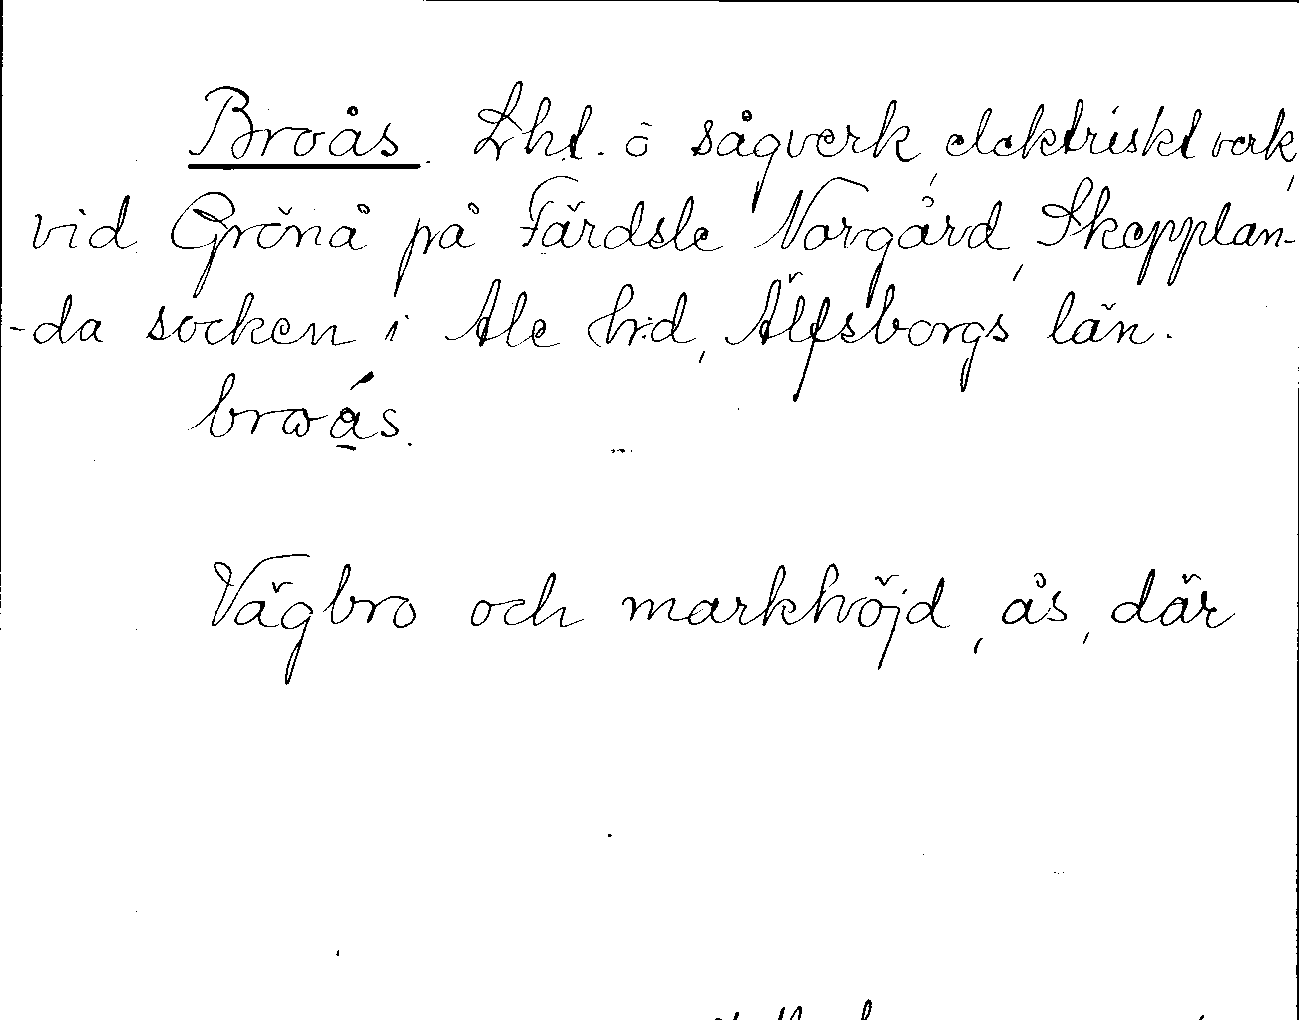 Broås. Lht. ō sågverk, elektriskt verk,
vid Grönå på Färdsle Norgård, Skepplan-
-da socken i Ale h:d, Älfsborgs län.
brωá̱s.
Vägbro och markhöjd, ås, där